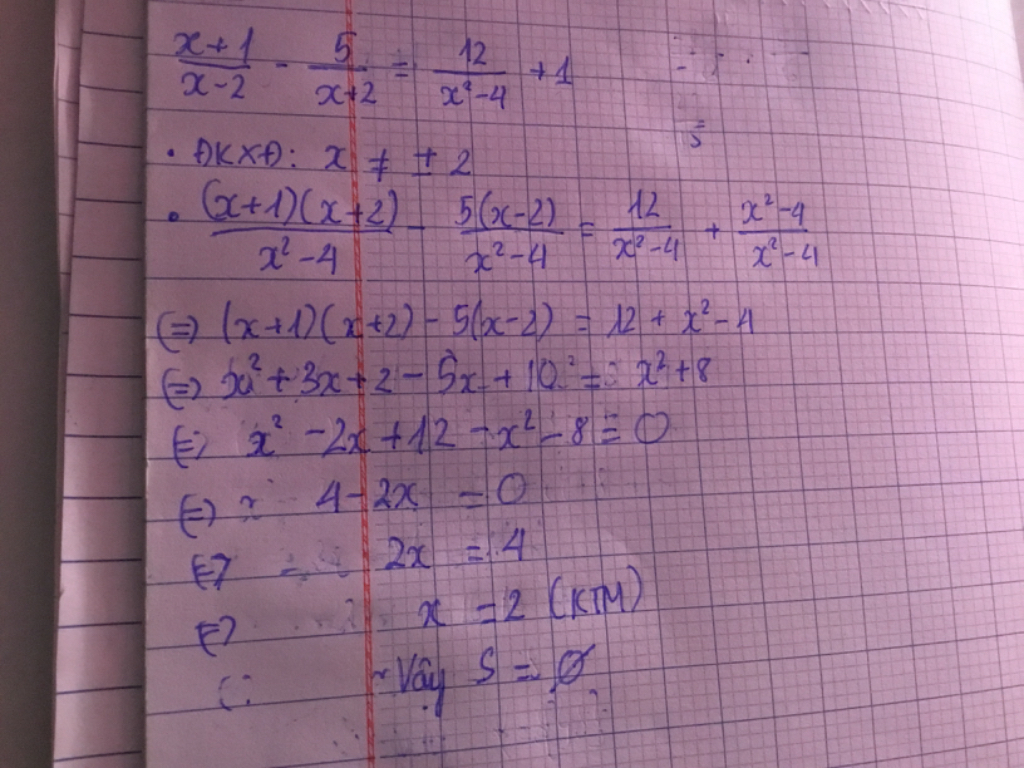 x+1/x-2 - 5/x+2 = 12/x²-4 + 1
• ĐKXĐ: x ≠ ± 2
• (x+1)(x+2)/x²-4 - 5(x-2)/x²-4 = 12/x²-4 + x²-4/x²-4
(=) (x+1)(x+2) - 5(x-2) = 12 + x² - 4
(=) x² + 3x + 2 - 5x + 10 = x² + 8
(=) x² - 2x + 12 - x² - 8 = 0
(=) 4 - 2x = 0
(=) 2x = 4
(=) x = 2 (KTM)
Vậy S = ∅